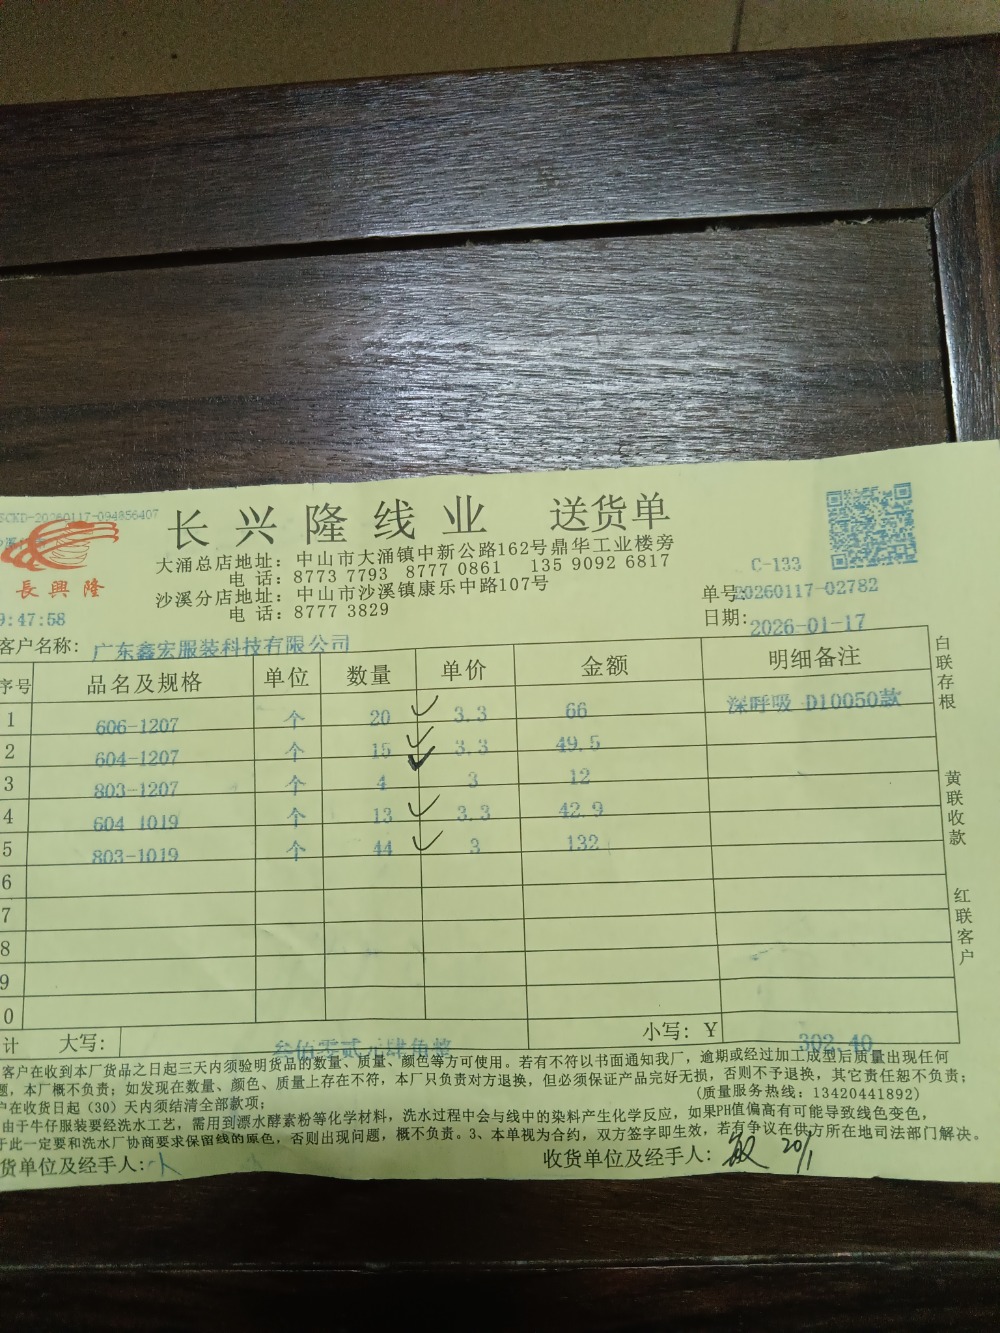 SCKD-20260117-094856407
长兴隆线业 送货单
大涌总店地址：中山市大涌镇中新公路162号鼎华工业楼旁
電話：8773 7793 8777 0861 135 9092 6817
沙溪分店地址：中山市沙溪镇康乐中路107号
電話：8777 3829
長興隆
9:47:58
C-133
单号:20260117-02782
日期: 2026-01-17
客户名称: 广东鑫宏服装科技有限公司
序号 品名及规格 单位 数量 单价 金额 明细备注
1 606-1207 个 20 3.3 66 深呼吸 D10050款
2 604-1207 个 15 3.3 49.5
3 803-1207 个 4 3 12
4 604 1019 个 13 3.3 42.9
5 803-1019 个 44 3 132
6
7
8
9
0
计 大写: 叁佰零贰元肆角整 小写: Y 302.40
白联存根
黄联收款
红联客户
客户在收到本厂货品之日起三天内须验明货品的数量、质量、颜色等方可使用。若有不符以书面通知我厂，逾期或经过加工成型后质量出现任何
题，本厂概不负责；如发现在数量、颜色、质量上存在不符，本厂只负责对方退换，但必须保证产品完好无损，否则不予退换，其它责任恕不负责；
户在收货日起（30）天内须结清全部款项；
(质量服务热线：13420441892)
由于牛仔服装要经洗水工艺，需用到漂水酵素粉等化学材料，洗水过程中会与线中的染料产生化学反应，如果PH值偏高有可能导致线色变色，
于此一定要和洗水厂协商要求保留线的原色，否则出现问题，概不负责。3、本单视为合约，双方签字即生效，若有争议在供方所在地司法部门解决。
货单位及经手人:
收货单位及经手人: 敏 20/1